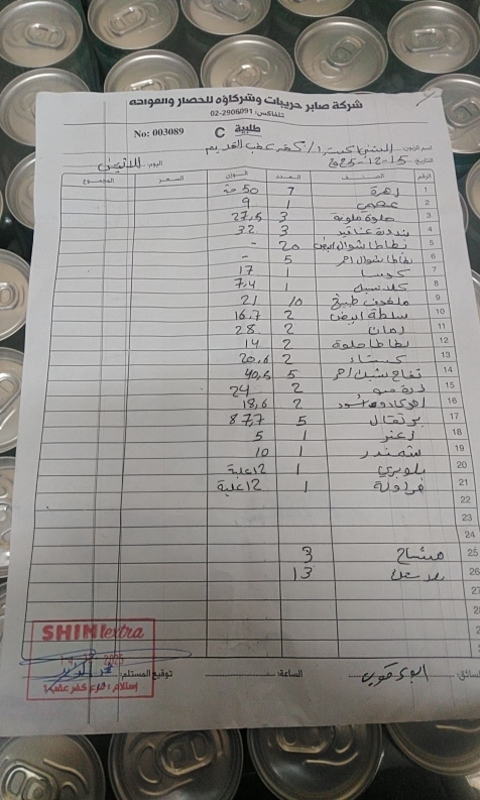 شركة صابر حريبات وشركاؤه للخضار والفواكه
تلفاكس: 02-2906091
No: 003089 طلبية C
اسم الزبون: / كفر عقب القديم
التاريخ: 15-12-2025 اليوم: الاثنين
الرقم الصنف العدد الوزن السعر المجموع
1 زهرة 7 50
2 عجمي 1 9
3 حلوة ملونة 3 27,5
4 بندورة عناقيد 3 32
5 بطاطا شوال ابيض 20 -
6 بطاطا شوال احمر 5 -
7 كوسا 1 17
8 1 7,4
9 ملفوف طبيخ 10 21
10 سلطة ابيض 2 16.7
11 رمان 2 28
12 بطاطا حلوة 2 14
13 كستناء 2 20.6
14 تفاح احمر 5 40,5
15 2 24
16 افوكادو اسود 2 18,6
17 برتقال 5 87,7
18 زعتر 1 5
19 شمندر 1 10
20 بلوبري 1 12علبة
21 فراولة 1 12علبة
22
23
24
25 مشتاح 3
26 13
27
28
السائق: الساعة: توقيع المستلم:
SHINI extra
2025
استلام: فرع كفر عقب